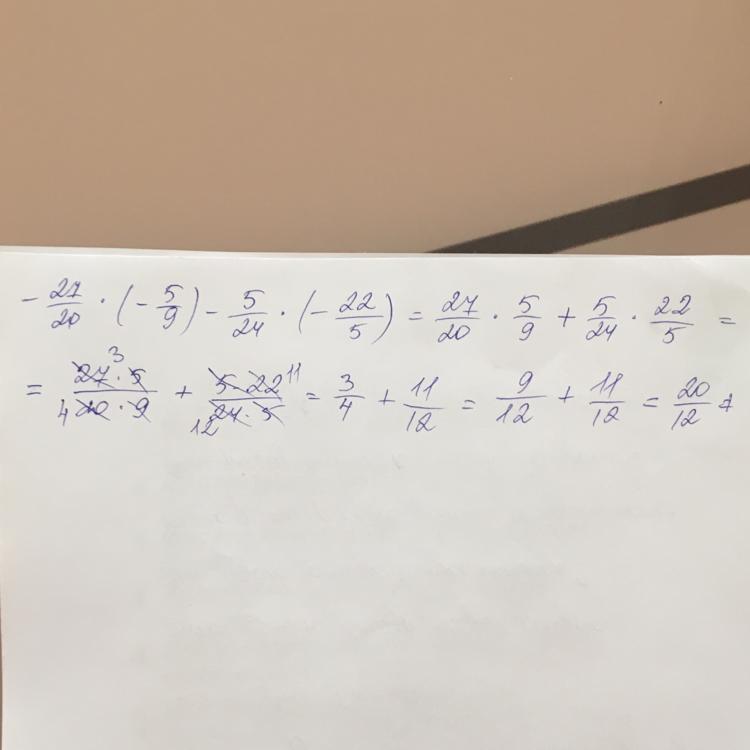 - 27/20 · (- 5/9) - 5/24 · (- 22/5) = 27/20 · 5/9 + 5/24 · 22/5 =
= 27 3 · 5 / 4 20 · 9 + 5 · 22 11 / 12 24 · 5 = 3/4 + 11/12 = 9/12 + 11/12 = 20/12 =